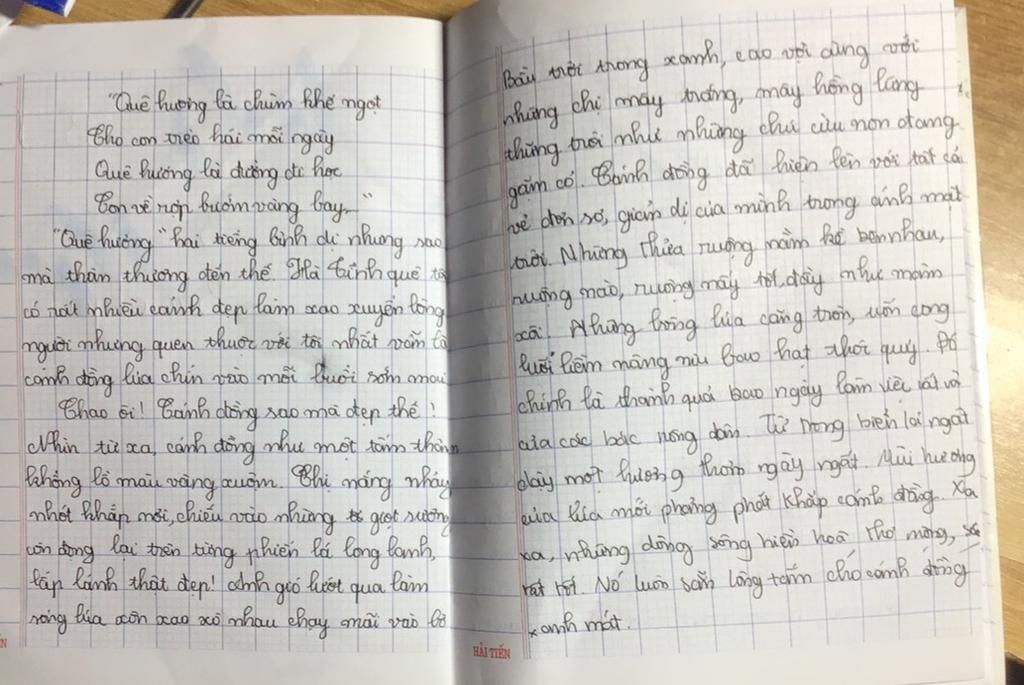 "Quê hương là chùm khế ngọt
Cho con trèo hái mỗi ngày
Quê hương là đường đi học
Con về rợp bướm vàng bay..."
"Quê hương" hai tiếng bình dị nhưng sao
mà thân thương đến thế. Hà Tĩnh quê tôi
có rất nhiều cảnh đẹp làm xao xuyến lòng
người nhưng quen thuộc với tôi nhất vẫn là
cánh đồng lúa chín vào mỗi buổi sớm mai
Chao ôi! Cánh đồng sao mà đẹp thế!
Nhìn từ xa, cánh đồng như một tấm thảm
khổng lồ màu vàng xuộm. Chị nắng nhảy
nhót khắp nơi, chiếu vào những giọt sương
còn đọng lại trên từng phiến lá long lanh,
lấp lánh thật đẹp! Anh gió lướt qua làm
sóng lúa xôn xao xô nhau chạy mãi vào bờ
HẢI TIẾN
Bầu trời trong xanh, cao vời cùng với
những chị mây trắng, mây hồng lang
thững trôi như những chú cừu non đang
gặm cỏ. Cánh đồng đã hiện lên với tất cả
vẻ đơn sơ, giản dị của mình trong ánh mặt
trời. Những thửa ruộng nằm kề bên nhau,
ruộng nào, ruộng nấy tốt, đầy như mâm
xôi. Những bông lúa căng tròn, uốn cong
lưỡi liềm nâng niu bao hạt thơi quý. Đó
chính là thành quả bao ngày làm việc vất vả
của các bác nông dân. Từ trong biển lại ngất
dậy một hương thơm ngây ngất. Mùi hương
của lúa mới phảng phất khắp cánh đồng. Xa
xa, những dòng sông hiền hoà thơ mộng,
rất tốt. Nó luôn sẵn lòng tắm cho cánh đồng
xanh mát.